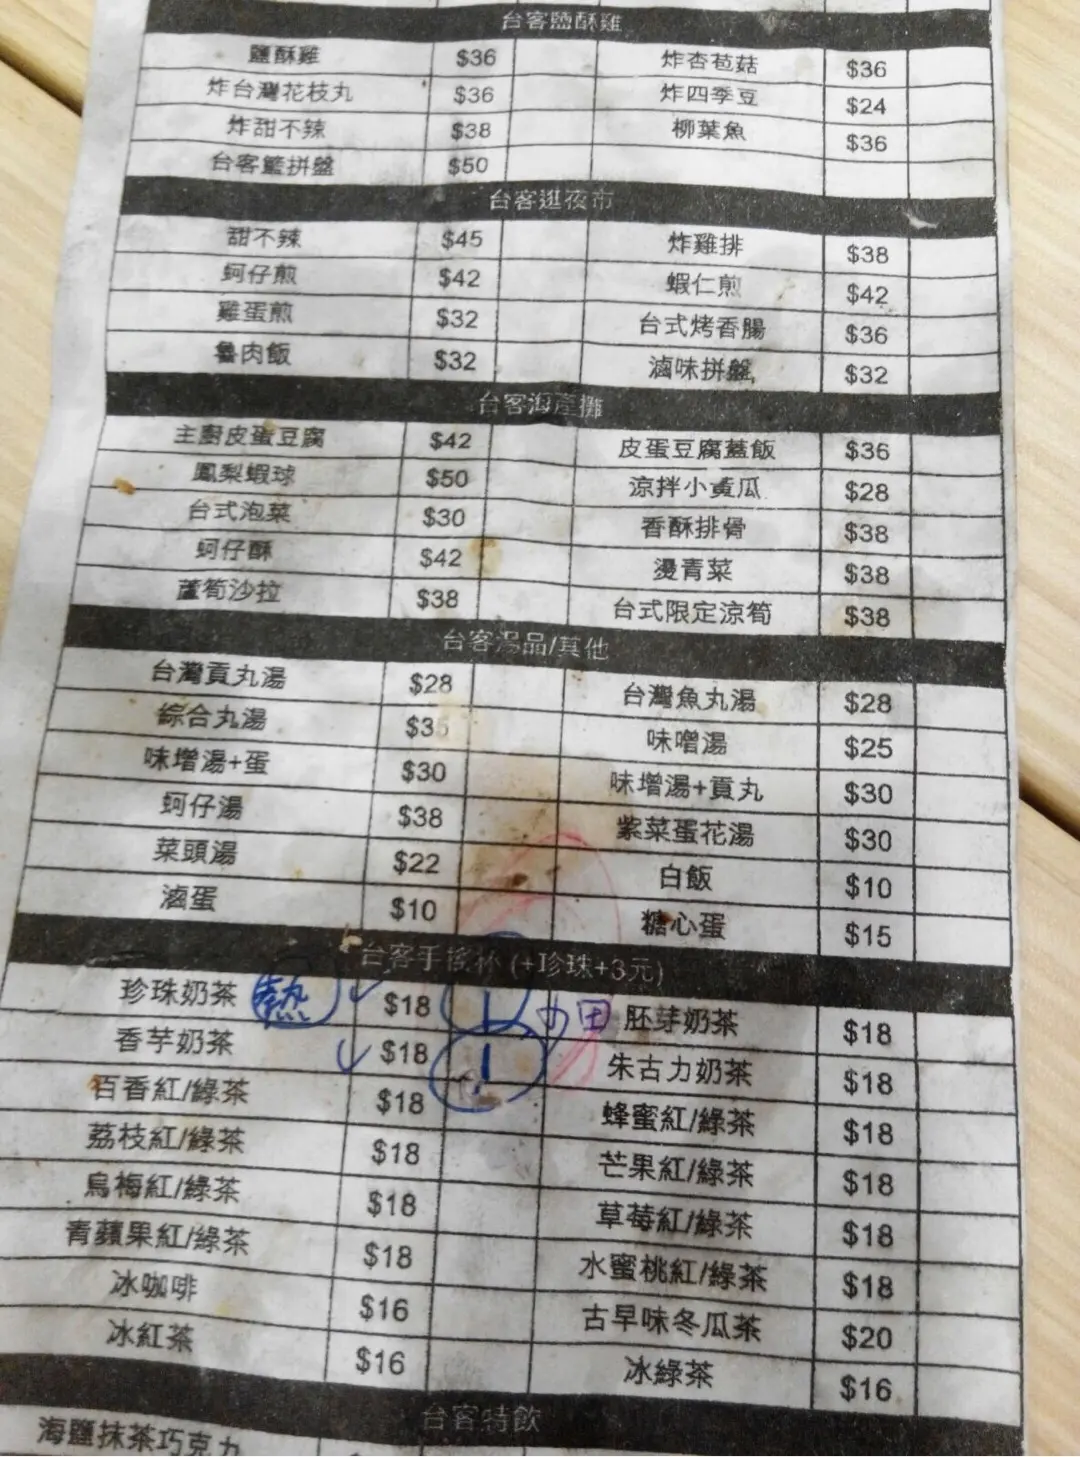 台客鹽酥雞
鹽酥雞 $36 炸杏苞菇 $36
炸台灣花枝丸 $36 炸四季豆 $24
炸甜不辣 $38 柳葉魚 $36
台客籃拼盤 $50
台客逛夜市
甜不辣 $45 炸雞排 $38
蚵仔煎 $42 蝦仁煎 $42
雞蛋煎 $32 台式烤香腸 $36
魯肉飯 $32 滷味拼盤 $32
台客海產攤
主廚皮蛋豆腐 $42 皮蛋豆腐蓋飯 $36
鳳梨蝦球 $50 涼拌小黃瓜 $28
台式泡菜 $30 香酥排骨 $38
蚵仔酥 $42 燙青菜 $38
蘆筍沙拉 $38 台式限定涼筍 $38
台客湯品/其他
台灣貢丸湯 $28 台灣魚丸湯 $28
綜合丸湯 $35 味噌湯 $25
味增湯+蛋 $30 味增湯+貢丸 $30
蚵仔湯 $38 紫菜蛋花湯 $30
菜頭湯 $22 白飯 $10
滷蛋 $10 糖心蛋 $15
台客手搖杯 (+珍珠+3元)
珍珠奶茶 熱 $18 1 胚芽奶茶 $18
香芋奶茶 $18 1 朱古力奶茶 $18
百香紅/綠茶 $18 蜂蜜紅/綠茶 $18
荔枝紅/綠茶 $18 芒果紅/綠茶 $18
烏梅紅/綠茶 $18 草莓紅/綠茶 $18
青蘋果紅/綠茶 $18 水蜜桃紅/綠茶 $18
冰咖啡 $16 古早味冬瓜茶 $20
冰紅茶 $16 冰綠茶 $16
台客特飲
海鹽抹茶巧克力